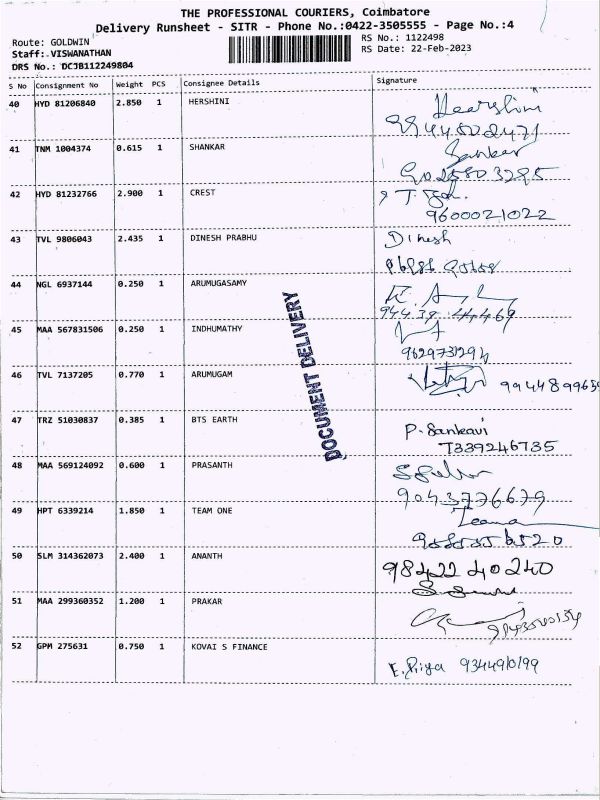 THE PROFESSIONAL COURIERS, Coimbatore
Delivery Runsheet - SITR - Phone No.:0422-3505555 - Page No.:4
Route: GOLDWIN RS No.: 1122498
Staff: VISWANATHAN RS Date: 22-Feb-2023
DRS No.: DCJB112249804
S No Consignment No Weight PCS Consignee Details Signature
40 HYD 81206840 2.850 1 HERSHINI Hearshini
41 TNM 1004374 0.615 1 SHANKAR Sankar
42 HYD 81232766 2.900 1 CREST
9600021022
43 TVL 9806043 2.435 1 DINESH PRABHU Dinesh
44 NGL 6937144 0.250 1 ARUMUGASAMY
94439 44469
45 MAA 567831506 0.250 1 INDHUMATHY
46 TVL 7137205 0.770 1 ARUMUGAM
47 TRZ 51030837 0.385 1 BTS EARTH P. Sankavi
7339246735
48 MAA 569124092 0.600 1 PRASANTH
9043776679
49 HPT 6339214 1.850 1 TEAM ONE
50 SLM 314362073 2.400 1 ANANTH 98422 40240
51 MAA 299360352 1.200 1 PRAKAR
52 GPM 275631 0.750 1 KOVAI S FINANCE E. Priya 9344910199
DOCUMENT DELIVERY